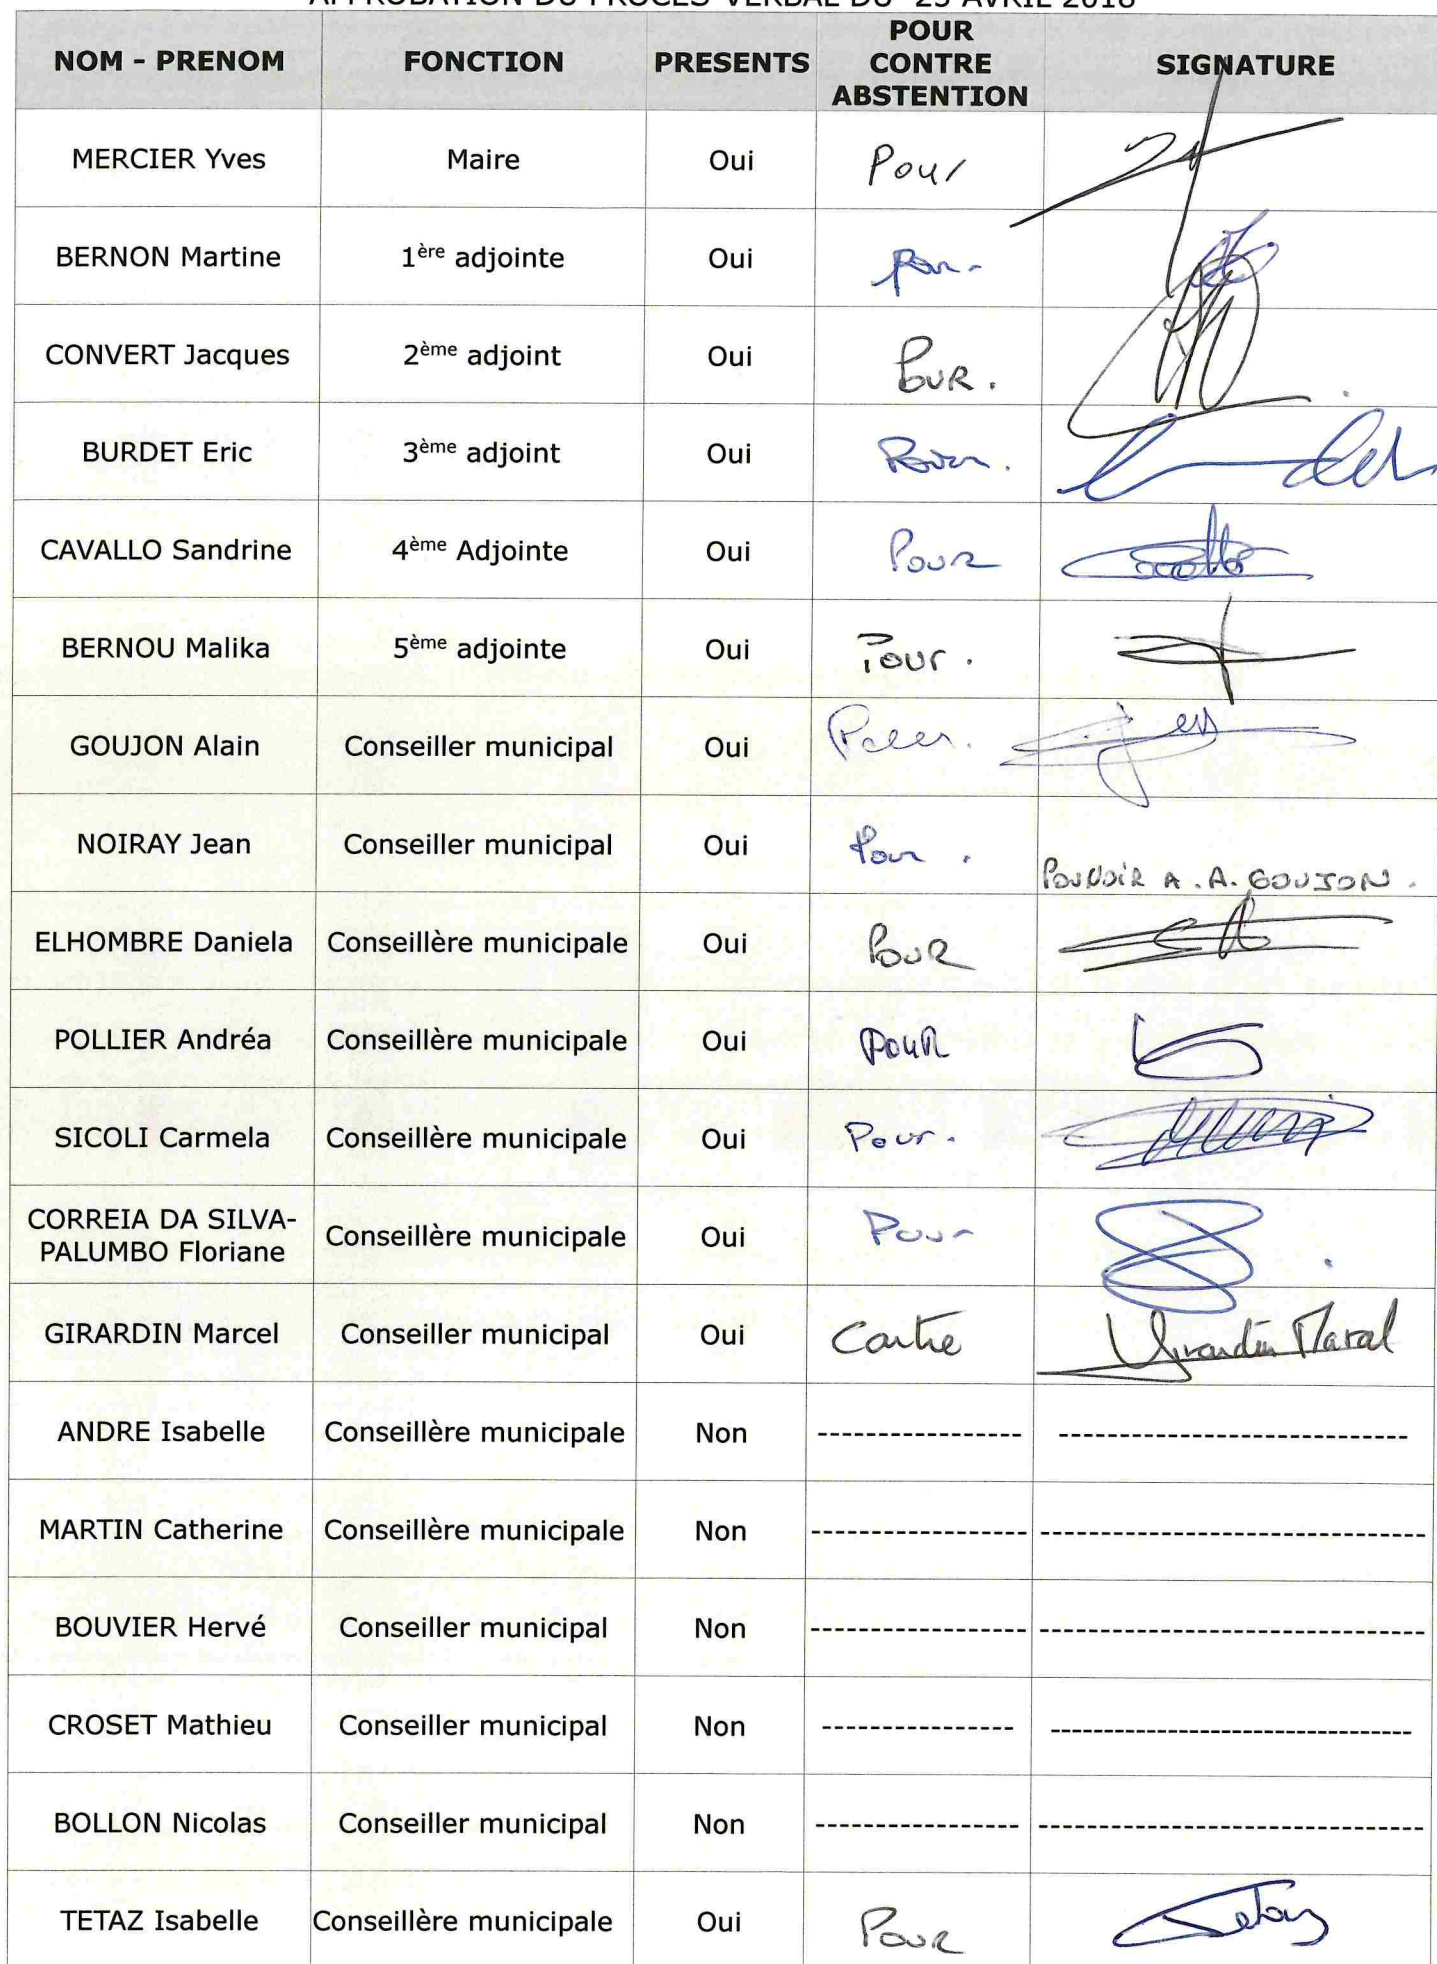 APPROBATION DU PROCES-VERBAL DU 25 AVRIL 2018
NOM - PRENOM FONCTION PRESENTS POUR CONTRE ABSTENTION SIGNATURE
MERCIER Yves Maire Oui Pour
BERNON Martine 1ère adjointe Oui pour
CONVERT Jacques 2ème adjoint Oui POUR.
BURDET Eric 3ème adjoint Oui Pour.
CAVALLO Sandrine 4ème Adjointe Oui POUR
BERNOU Malika 5ème adjointe Oui Pour.
GOUJON Alain Conseiller municipal Oui Pour.
NOIRAY Jean Conseiller municipal Oui Pour. POUVOIR A. A. GOUJON.
ELHOMBRE Daniela Conseillère municipale Oui POUR
POLLIER Andréa Conseillère municipale Oui POUR
SICOLI Carmela Conseillère municipale Oui Pour.
CORREIA DA SILVA-
PALUMBO Floriane Conseillère municipale Oui Pour
GIRARDIN Marcel Conseiller municipal Oui Contre Girardin Marcel
ANDRE Isabelle Conseillère municipale Non ---------------- ----------------------------
MARTIN Catherine Conseillère municipale Non ----------------- -------------------------------
BOUVIER Hervé Conseiller municipal Non ----------------- -------------------------------
CROSET Mathieu Conseiller municipal Non --------------- -----------------------------
BOLLON Nicolas Conseiller municipal Non ---------------- -------------------------------
TETAZ Isabelle Conseillère municipale Oui POUR Tetaz